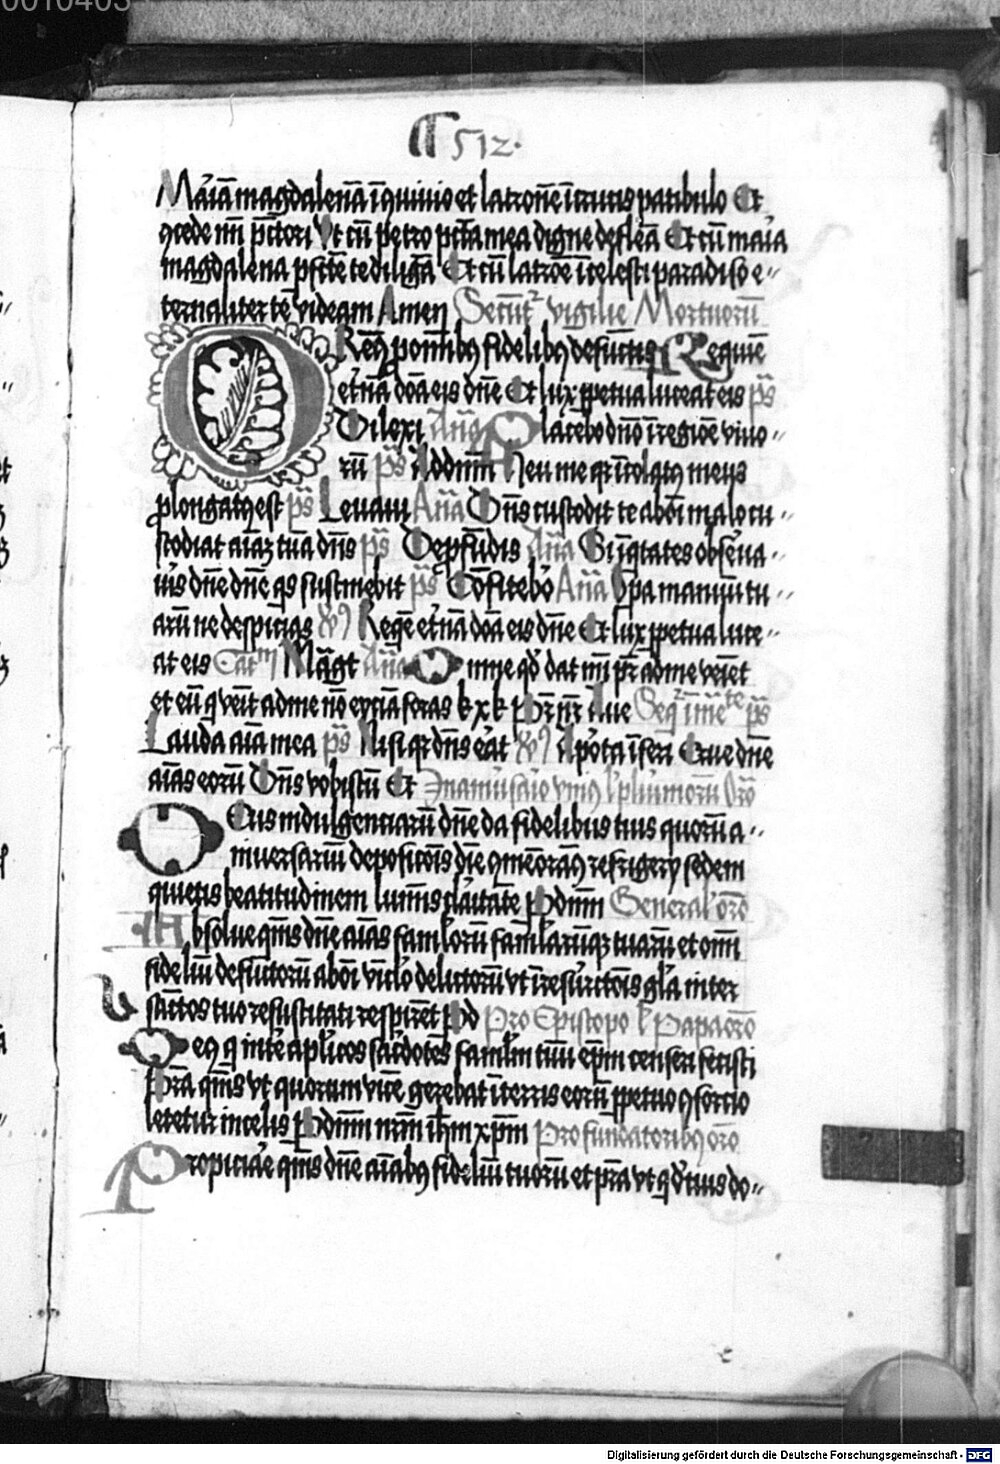 0010403
¶ 512.
Māiā magdalenā ī quiuio et latronē ī crucis patibulo Et
ꝯcede mī pc̄tori Vt cū petro pc̄ta mea digne defleā Et cū maīa
magdalena pfc̄te te diligā Et cū latrōe ī celesti paradiso e-
ternaliter te videam Amen vigilie Mortuorū
oīnibꝰ fidelibꝰ defūctis Requiē
et̄nā dōa eis dn̄e Et lux ꝑpetua luceat eis ps̄
Dilexi Añā Placebo dn̄o ī regiōe viuo-
rū ps̄ Ad dn̄m Heu me qr īcolatꝰ meus
ꝓlongatꝰ est ps̄ Leuaui Añā Dn̄s custodit te ab oī malo cu-
stodiat aīaꝫ tuā dn̄s ps̄ De ꝓfūdis Añā Si īiqtates obseua-
uis dn̄e dn̄e qs sustinebit ps̄ Cōfitebor Añā Opa manuū tu-
arū ne despicias Reqē et̄nā dōa eis dn̄e Et lux ꝑpetua luce-
at eis Māgt Añā Omne qd dat mī pr̄ ad me veīet
et eū q venit ad me nō eyciā foras k x k Pr̄ nr̄ Aue ps̄
Lauda aīa mea ps̄ Nisi qr dn̄s eāt A porta īferi Erue dn̄e
aīas eorū Dn̄s vobiscū Et
Deus indulgenciarū dn̄e da fidelibus tuis quorū a-
niuersariū deposicōis diē ꝯmēoramꝰ refrigery sedem
quietis beatitudinem lumīs claritatē P dn̄m General' orō
Absolue qm̄s dn̄e aīas famlorū famlarūqꝫ tuarū et om̄
fideliū defūctorū ab oī vīclo delictorū vt ī resurctōis glā inter
sāctos tuos resuscitati respirēt P d Pro Episcopo l Papa orō
Deꝰ q inte apl'icos sacdotes famlm tuū ep̄m censeri fecisti
pr̄a qm̄s vt quorum vice gerebat ī terris eorū ꝑpetuo ꝯsorcio
letetur in celis P dn̄m nrm ihm xpm Pro fundatoribꝰ orō
Propiciare qm̄s dn̄e aīabꝰ fideliū tuorū et pr̄a vt q d' tuis do-
Digitalisierung gefördert durch die Deutsche Forschungsgemeinschaft - DFG